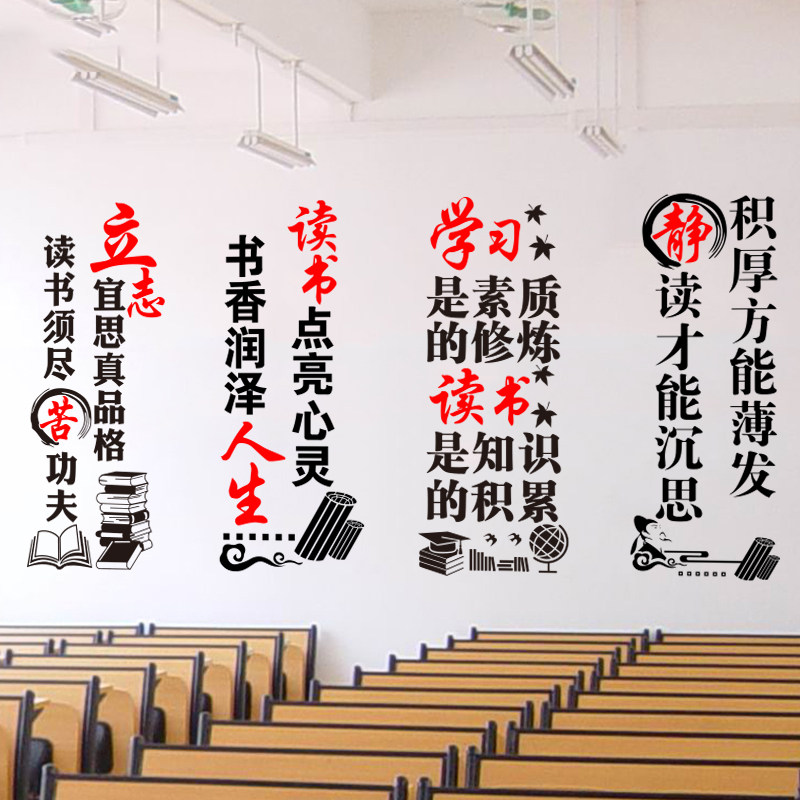 立志宜思真品格
读书须尽苦功夫
读书点亮心灵
书香润泽人生
学习
是素质
的修炼
读书
是知识
的积累
积厚方能薄发
静读才能沉思